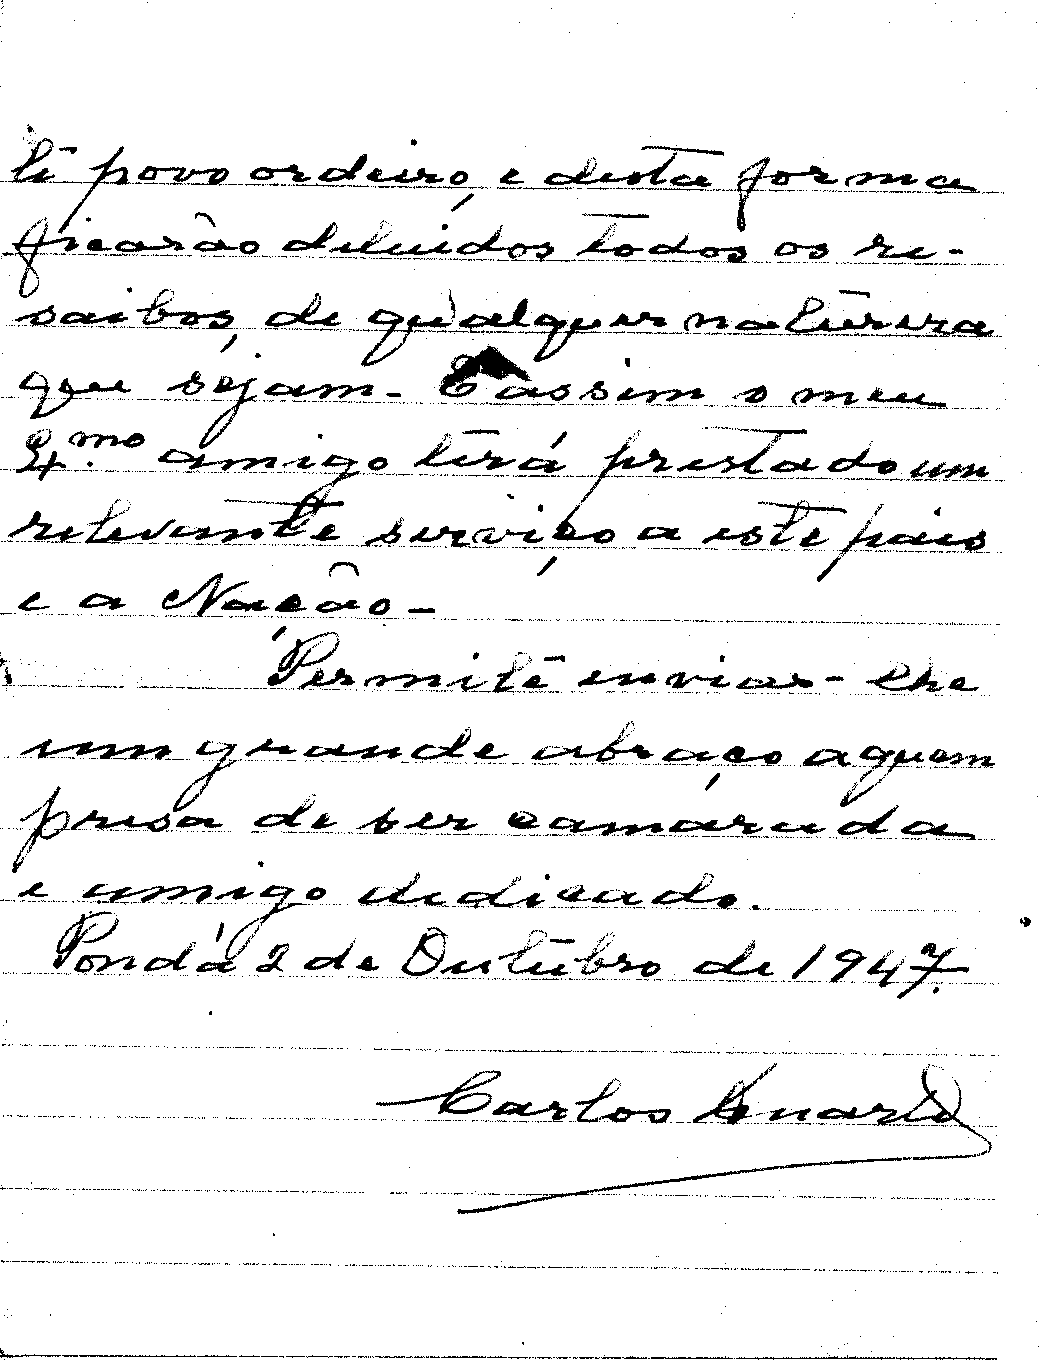 te povo ordeiro, e desta forma
ficarão diluidos todos os re-
saibos, de qualquer natureza
que sejam. E assim o meu
Exmo amigo terá prestado um
relevante serviço a este pais
e a Nação -
Permite enviar-lhe
um grande abraço a quem
presa de ser camarada
e amigo dedicado.
Pondá 2 de Outubro de 1947.
Carlos